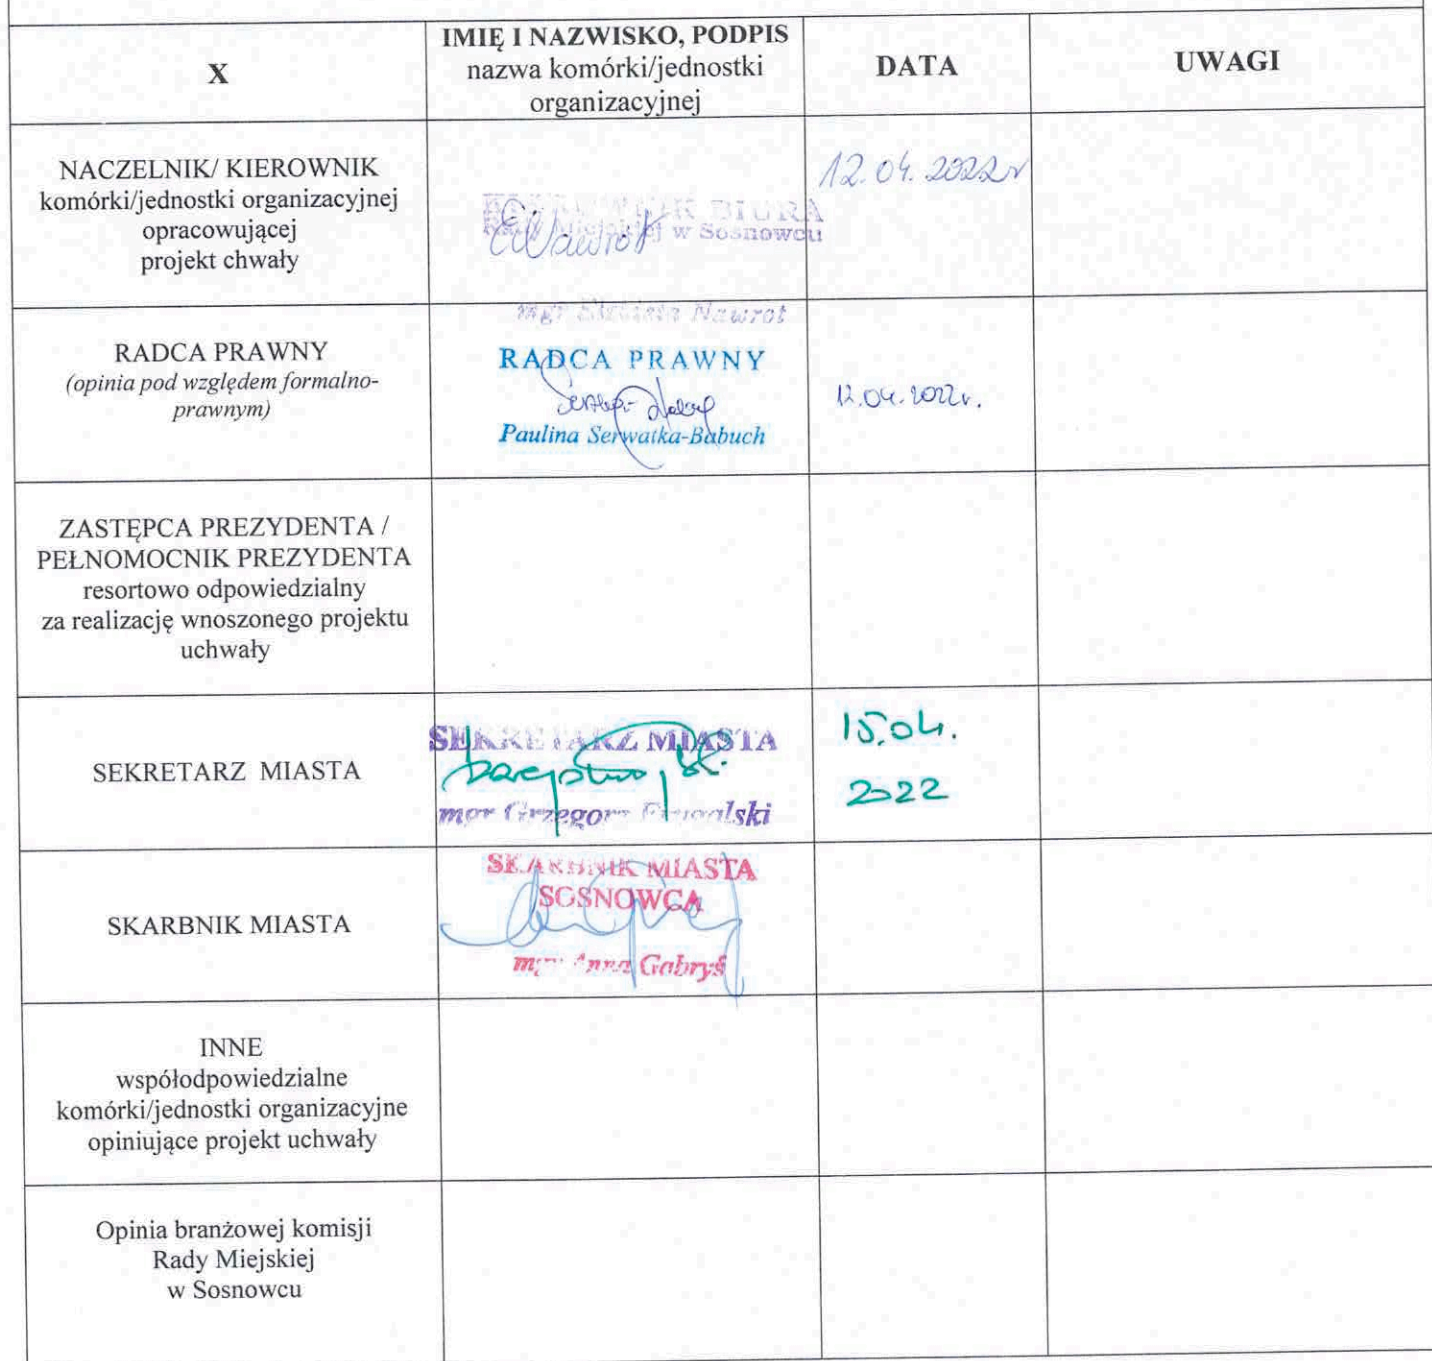 X
IMIĘ I NAZWISKO, PODPIS
nazwa komórki/jednostki
organizacyjnej
DATA
UWAGI
NACZELNIK/ KIEROWNIK
komórki/jednostki organizacyjnej
opracowującej
projekt chwały
KIEROWNIK BIURA
Rady Miejskiej w Sosnowcu
ENawrot
mgr Elżbieta Nawrot
12.04.2022r
RADCA PRAWNY
(opinia pod względem formalno-
prawnym)
RADCA PRAWNY
Paulina Serwatka-Babuch
12.04.2022r.
ZASTĘPCA PREZYDENTA /
PEŁNOMOCNIK PREZYDENTA
resortowo odpowiedzialny
za realizację wnoszonego projektu
uchwały
SEKRETARZ MIASTA
SEKRETARZ MIASTA
mgr Grzegorz
15.04.
2022
SKARBNIK MIASTA
SKARBNIK MIASTA
SOSNOWCA
mgr Anna Gabryś
INNE
współodpowiedzialne
komórki/jednostki organizacyjne
opiniujące projekt uchwały
Opinia branżowej komisji
Rady Miejskiej
w Sosnowcu